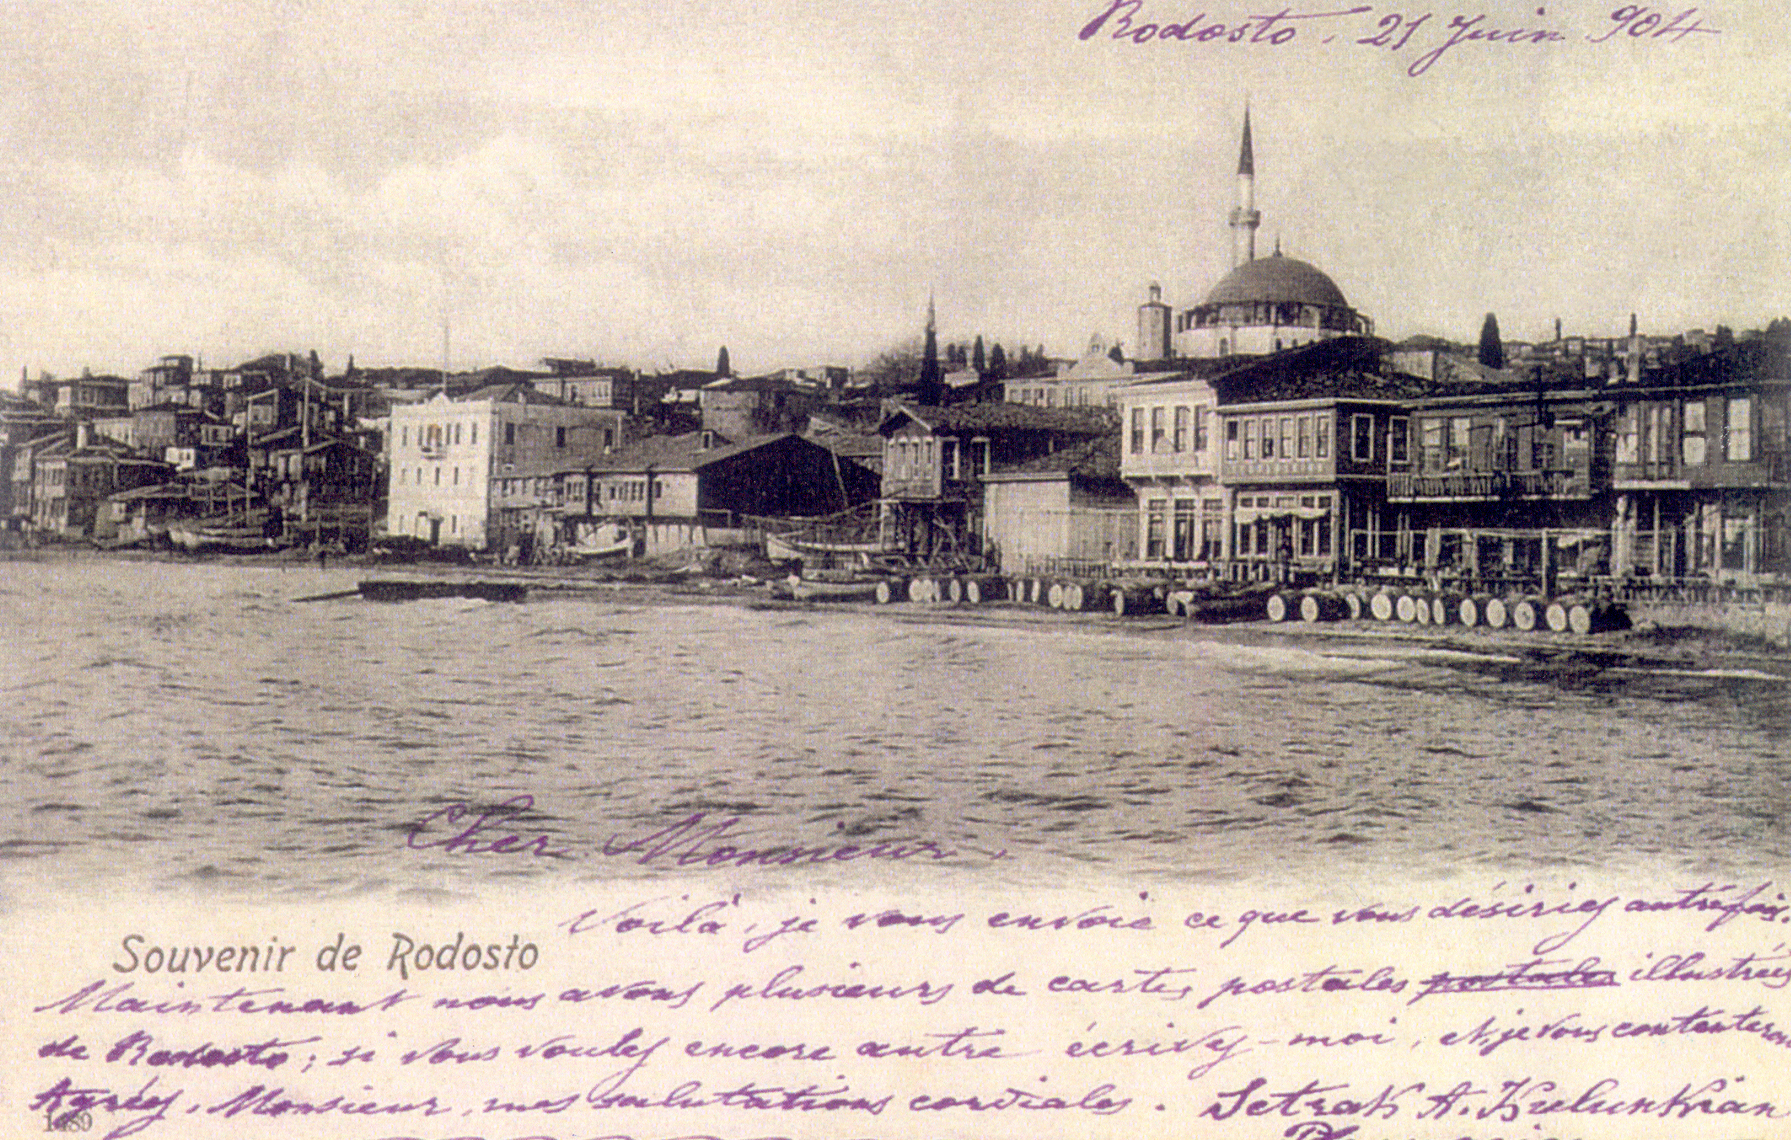 Rodosto, 21 Juin 904
Cher Monsieur,
Voilà, je vous envoie ce que vous désiriez autréfois
Souvenir de Rodosto
Maintenant nous avons plusieurs de cartes postales postales illustrées
de Rodosto; si vous voulez encore autre écrivez-moi, et je vous contenterai
Agréez, Monsieur, mes salutations cordiales. Setrak A.
1489